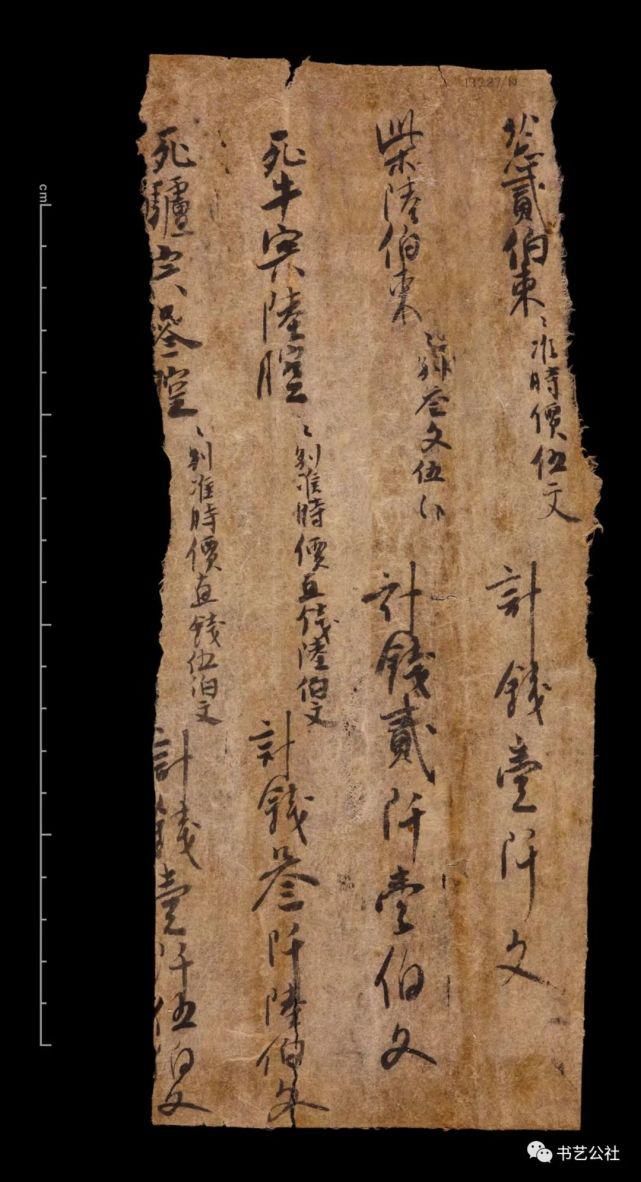 葱貳伯束〻准時價伍文 計錢壹阡文
柴陸伯束〻別叁文伍分 計錢貳阡壹伯文
死牛宍陸腔〻別准時價直錢陸伯文 計錢叁阡陸伯文
死驢宍叁腔〻別准時價直錢伍伯文 計錢壹阡伍伯文
cm
书艺公社